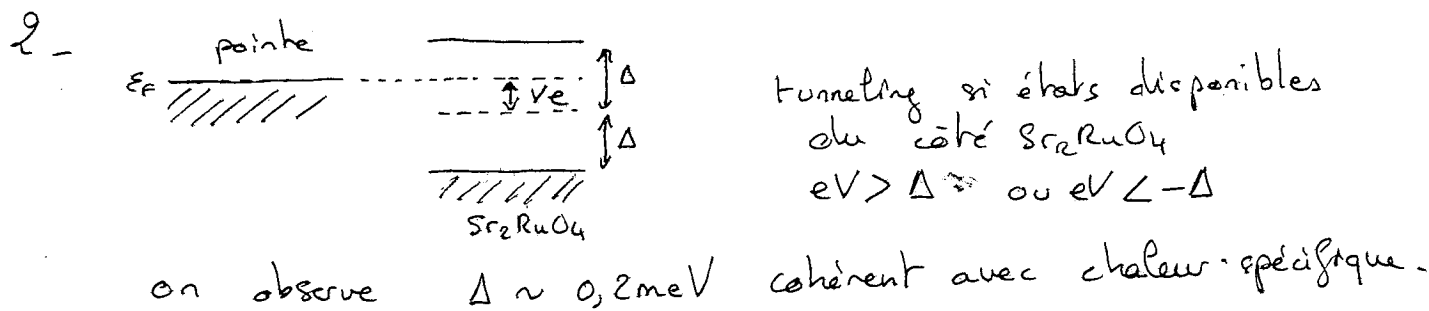 2 -
pointe
εF
Ve
Δ
Δ
Sr2RuO4
tunneling si états disponibles
du côté Sr2RuO4
eV > Δ ou eV < -Δ
on observe Δ ~ 0,2meV cohérent avec chaleur spécifique.